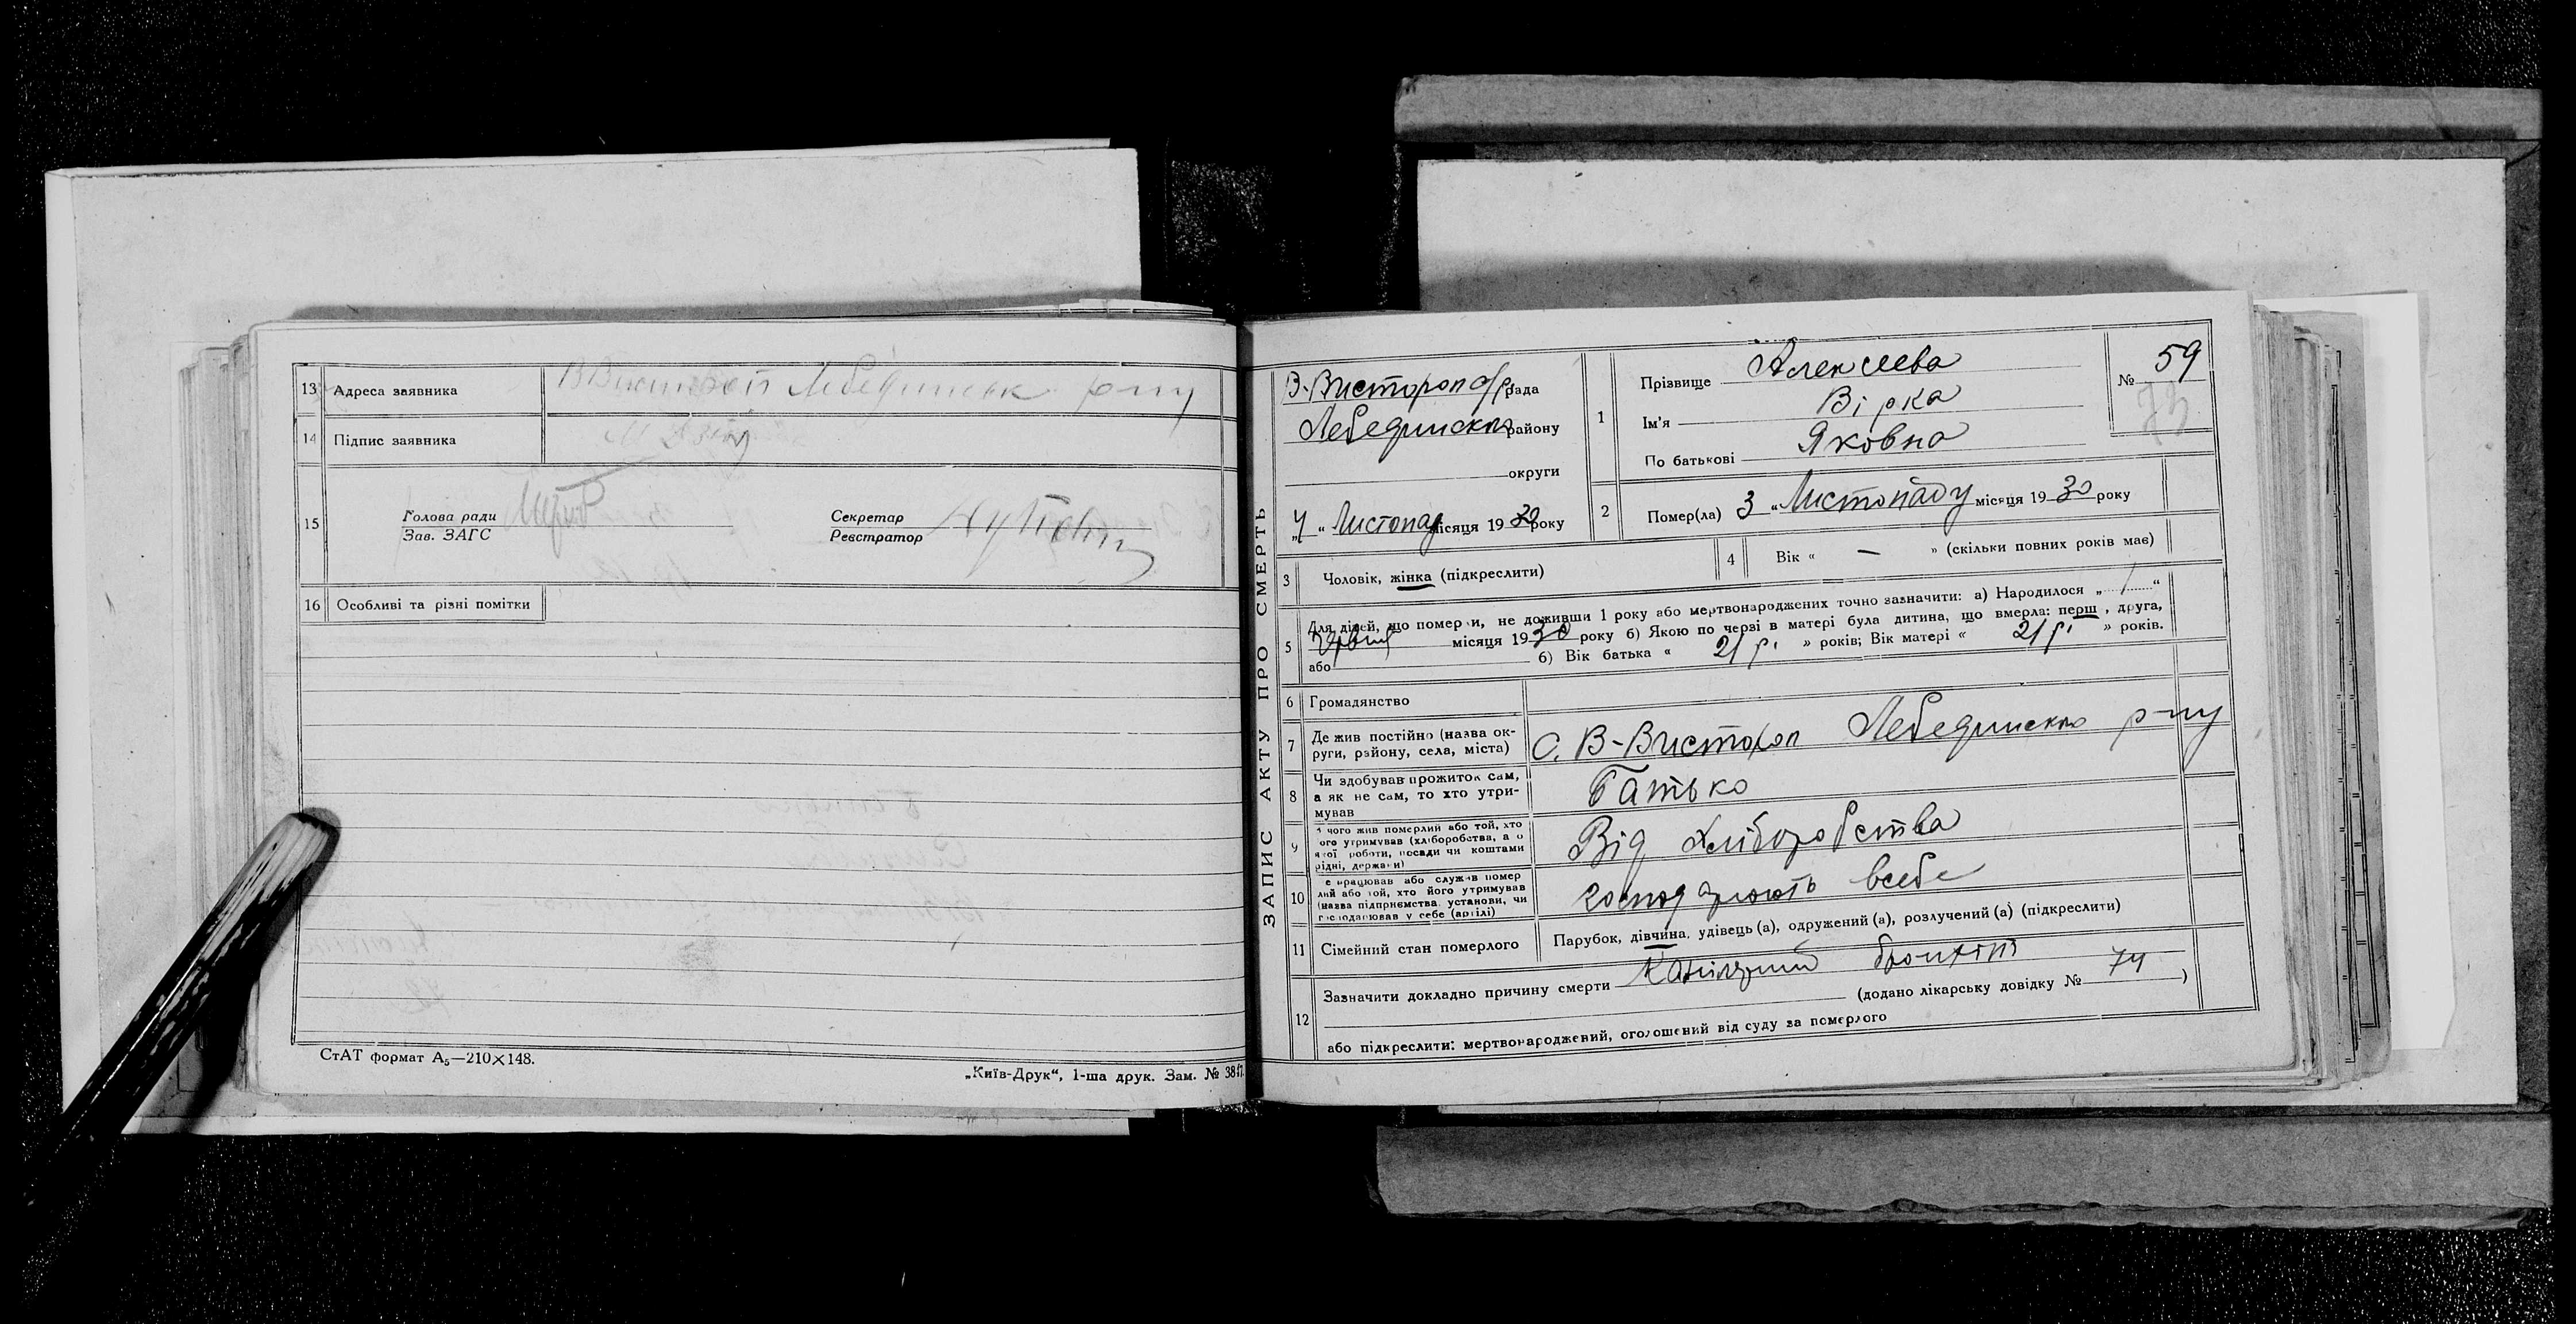 13 Адреса заявника В Вистороп Лебединськ р-ну
14 Підпис заявника
15 Голова ради
Зав. ЗАГС
Секретар
Реєстратор
16 Особливі та різні помітки
СтАТ формат А₅—210×148.
„Київ-Друк“, 1-ша друк. Зам. №
ЗАПИС АКТУ ПРО СМЕРТЬ
В-Вистороп с/рада
Лебединськ району
округи
„4“ Листопад місяця 1930 року
1 Прізвище Алексеева
Ім'я Вірка
По батькові Яковна
№ 59
73
2 Помер(ла) 3 „Листопаду місяця 1930 року
3 Чоловік, жінка (підкреслити)
4 Вік « — » (скільки повних років має)
5 Для дітей, що померли, не доживши 1 року або мертвонароджених точно зазначити: а) Народилося „ 1 “
Червня місяця 1930 року б) Якою по черзі в матері була дитина, що вмерла: перш, друга,
або б) Вік батька « 21 р. » років; Вік матері « 21 р. » років.
6 Громадянство
7 Де жив постійно (назва ок-
руги, району, села, міста) С. В-Вистороп Лебединськ р-ну
8 Чи здобував прожиток сам,
а як не сам, то хто утри-
мував Батько
9 з чого жив померлий або той, хто
його утримував (хліборобства, а о
якої роботи, посади чи коштами
рідні, держави) Від хліборобства
10 е працював або служив помер
лий або той, хто його утримував
(назва підприємства, установи, чи
господарював у себе (артілі) господарюють всебе
11 Сімейний стан померлого Парубок, дівчина, удівець (а), одружений (а), розлучений (а) (підкреслити)
12 Зазначити докладно причину смерти Капілярний бронхіт
(додано лікарську довідку № 74 )
або підкреслити: мертвонароджений, оголошений від суду за померлого